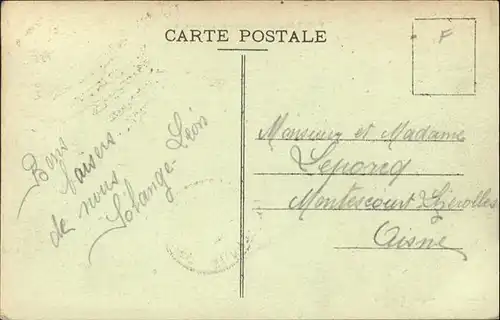 CARTE POSTALE
F
Bons
baisers
de nous
Solange - Léon
Monsieur et Madame
Leporcq
Montescourt Lizerolles
Aisne